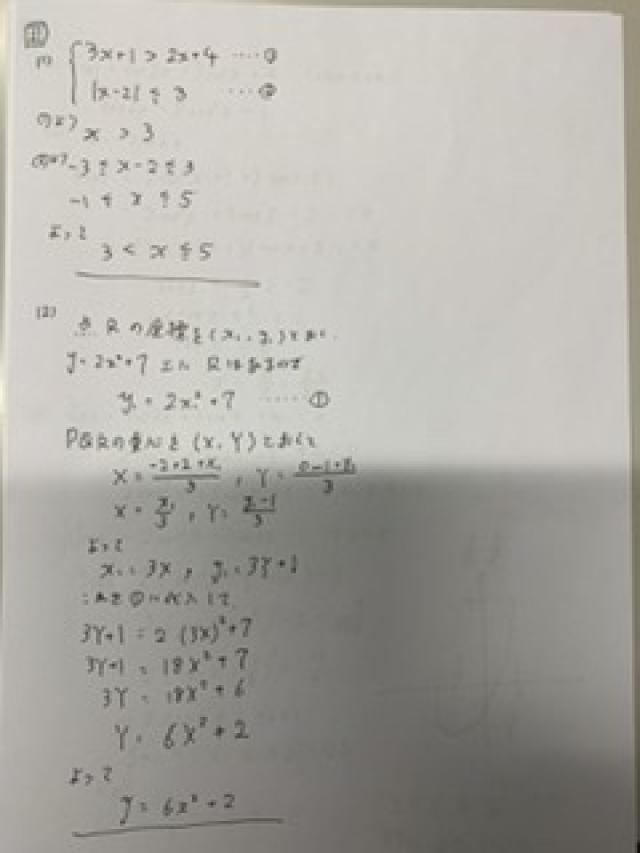 [1]
(1) { 3x+1 > 2x+4 …… ①
|x-2| ≦ 3 …… ②
①より x > 3
②より -3 ≦ x-2 ≦ 3
-1 ≦ x ≦ 5
よって
3 < x ≦ 5
(2) 点Rの座標を(x₁, y₁)とおく.
y=2x²+7 上に Rはあるので
y₁ = 2x₁²+7 …… ①
PQRの重心を (X, Y)とおくと
X = (-2+2+x₁)/3 , Y = (0-1+y₁)/3
X = x₁/3 , Y = (y₁-1)/3
よって
x₁ = 3X , y₁ = 3Y+1
これを①に代入して
3Y+1 = 2(3X)²+7
3Y+1 = 18X²+7
3Y = 18X²+6
Y = 6X²+2
よって
y = 6x²+2